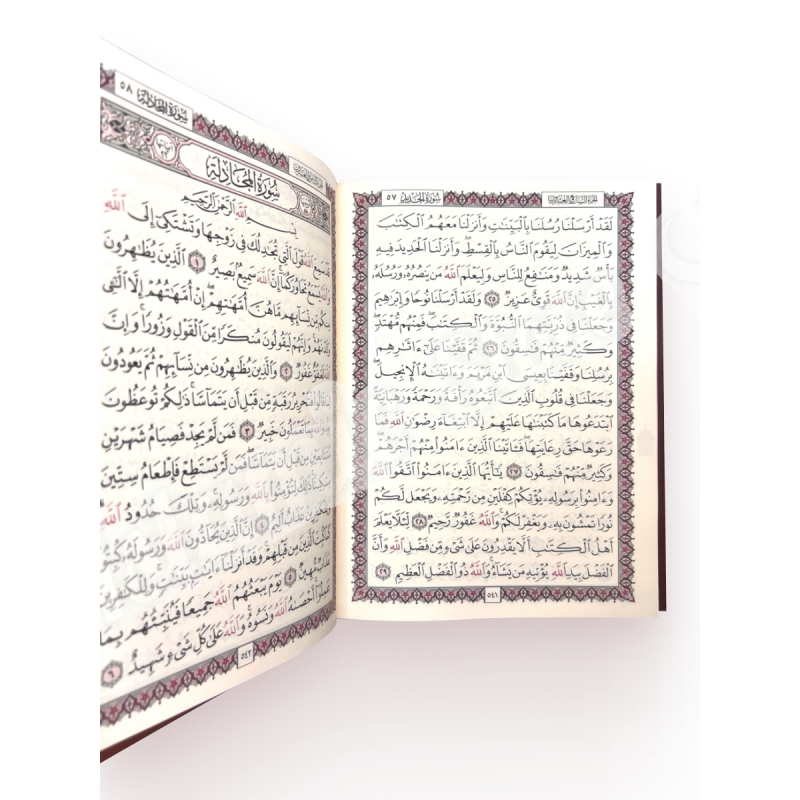 الجزء السابع والعشرون سورة الحديد ٥٧
لَقَدْ أَرْسَلْنَا رُسُلَنَا بِٱلْبَيِّنَٰتِ وَأَنزَلْنَا مَعَهُمُ ٱلْكِتَٰبَ
وَٱلْمِيزَانَ لِيَقُومَ ٱلنَّاسُ بِٱلْقِسْطِ ۖ وَأَنزَلْنَا ٱلْحَدِيدَ فِيهِ
بَأْسٌ شَدِيدٌ وَمَنَٰفِعُ لِلنَّاسِ وَلِيَعْلَمَ ٱللَّهُ مَن يَنصُرُهُۥ وَرُسُلَهُۥ
بِٱلْغَيْبِ ۚ إِنَّ ٱللَّهَ قَوِىٌّ عَزِيزٌ ٢٥ وَلَقَدْ أَرْسَلْنَا نُوحًا وَإِبْرَٰهِيمَ
وَجَعَلْنَا فِى ذُرِّيَّتِهِمَا ٱلنُّبُوَّةَ وَٱلْكِتَٰبَ ۖ فَمِنْهُم مُّهْتَدٍ ۖ
وَكَثِيرٌ مِّنْهُمْ فَٰسِقُونَ ٢٦ ثُمَّ قَفَّيْنَا عَلَىٰٓ ءَاثَٰرِهِم
بِرُسُلِنَا وَقَفَّيْنَا بِعِيسَى ٱبْنِ مَرْيَمَ وَءَاتَيْنَٰهُ ٱلْإِنجِيلَ
وَجَعَلْنَا فِى قُلُوبِ ٱلَّذِينَ ٱتَّبَعُوهُ رَأْفَةً وَرَحْمَةً وَرَهْبَانِيَّةً
ٱبْتَدَعُوهَا مَا كَتَبْنَٰهَا عَلَيْهِمْ إِلَّا ٱبْتِغَآءَ رِضْوَٰنِ ٱللَّهِ فَمَا
رَعَوْهَا حَقَّ رِعَايَتِهَا ۖ فَـَٔاتَيْنَا ٱلَّذِينَ ءَامَنُوا۟ مِنْهُمْ أَجْرَهُمْ ۖ
وَكَثِيرٌ مِّنْهُمْ فَٰسِقُونَ ٢٧ يَٰٓأَيُّهَا ٱلَّذِينَ ءَامَنُوا۟ ٱتَّقُوا۟ ٱللَّهَ
وَءَامِنُوا۟ بِرَسُولِهِۦ يُؤْتِكُمْ كِفْلَيْنِ مِن رَّحْمَتِهِۦ وَيَجْعَل لَّكُمْ
نُورًا تَمْشُونَ بِهِۦ وَيَغْفِرْ لَكُمْ ۚ وَٱللَّهُ غَفُورٌ رَّحِيمٌ ٢٨ لِّئَلَّا يَعْلَمَ
أَهْلُ ٱلْكِتَٰبِ أَلَّا يَقْدِرُونَ عَلَىٰ شَىْءٍ مِّن فَضْلِ ٱللَّهِ ۙ وَأَنَّ
ٱلْفَضْلَ بِيَدِ ٱللَّهِ يُؤْتِيهِ مَن يَشَآءُ ۚ وَٱللَّهُ ذُو ٱلْفَضْلِ ٱلْعَظِيمِ ٢٩
٥٤١
سورة المجادلة ٥٨
سورة المجادلة
بِسْمِ ٱللَّهِ ٱلرَّحْمَٰنِ ٱلرَّحِيمِ
قَدْ سَمِعَ ٱللَّهُ قَوْلَ ٱلَّتِى تُجَٰدِلُكَ فِى زَوْجِهَا وَتَشْتَكِىٓ إِلَى ٱللَّهِ
وَٱللَّهُ يَسْمَعُ تَحَاوُرَكُمَآ ۚ إِنَّ ٱللَّهَ سَمِيعٌۢ بَصِيرٌ ١ ٱلَّذِينَ يُظَٰهِرُونَ
مِنكُم مِّن نِّسَآئِهِم مَّا هُنَّ أُمَّهَٰتِهِمْ ۖ إِنْ أُمَّهَٰتُهُمْ إِلَّا ٱلَّٰٓـِٔى
وَلَدْنَهُمْ ۚ وَإِنَّهُمْ لَيَقُولُونَ مُنكَرًا مِّنَ ٱلْقَوْلِ وَزُورًا ۚ وَإِنَّ
ٱللَّهَ لَعَفُوٌّ غَفُورٌ ٢ وَٱلَّذِينَ يُظَٰهِرُونَ مِن نِّسَآئِهِمْ ثُمَّ يَعُودُونَ
لِمَا قَالُوا۟ فَتَحْرِيرُ رَقَبَةٍ مِّن قَبْلِ أَن يَتَمَآسَّا ۚ ذَٰلِكُمْ تُوعَظُونَ
بِهِۦ ۚ وَٱللَّهُ بِمَا تَعْمَلُونَ خَبِيرٌ ٣ فَمَن لَّمْ يَجِدْ فَصِيَامُ شَهْرَيْنِ
مُتَتَابِعَيْنِ مِن قَبْلِ أَن يَتَمَآسَّا ۖ فَمَن لَّمْ يَسْتَطِعْ فَإِطْعَامُ سِتِّينَ
مِسْكِينًا ۚ ذَٰلِكَ لِتُؤْمِنُوا۟ بِٱللَّهِ وَرَسُولِهِۦ ۚ وَتِلْكَ حُدُودُ ٱللَّهِ ۗ
وَلِلْكَٰفِرِينَ عَذَابٌ أَلِيمٌ ٤ إِنَّ ٱلَّذِينَ يُحَآدُّونَ ٱللَّهَ وَرَسُولَهُۥ كُبِتُوا۟
كَمَا كُبِتَ ٱلَّذِينَ مِن قَبْلِهِمْ ۚ وَقَدْ أَنزَلْنَآ ءَايَٰتٍۭ بَيِّنَٰتٍ ۚ وَلِلْكَٰفِرِينَ
عَذَابٌ مُّهِينٌ ٥ يَوْمَ يَبْعَثُهُمُ ٱللَّهُ جَمِيعًا فَيُنَبِّئُهُم بِمَا
عَمِلُوٓا۟ ۚ أَحْصَىٰهُ ٱللَّهُ وَنَسُوهُ ۚ وَٱللَّهُ عَلَىٰ كُلِّ شَىْءٍ شَهِيدٌ ٦
٥٤٢